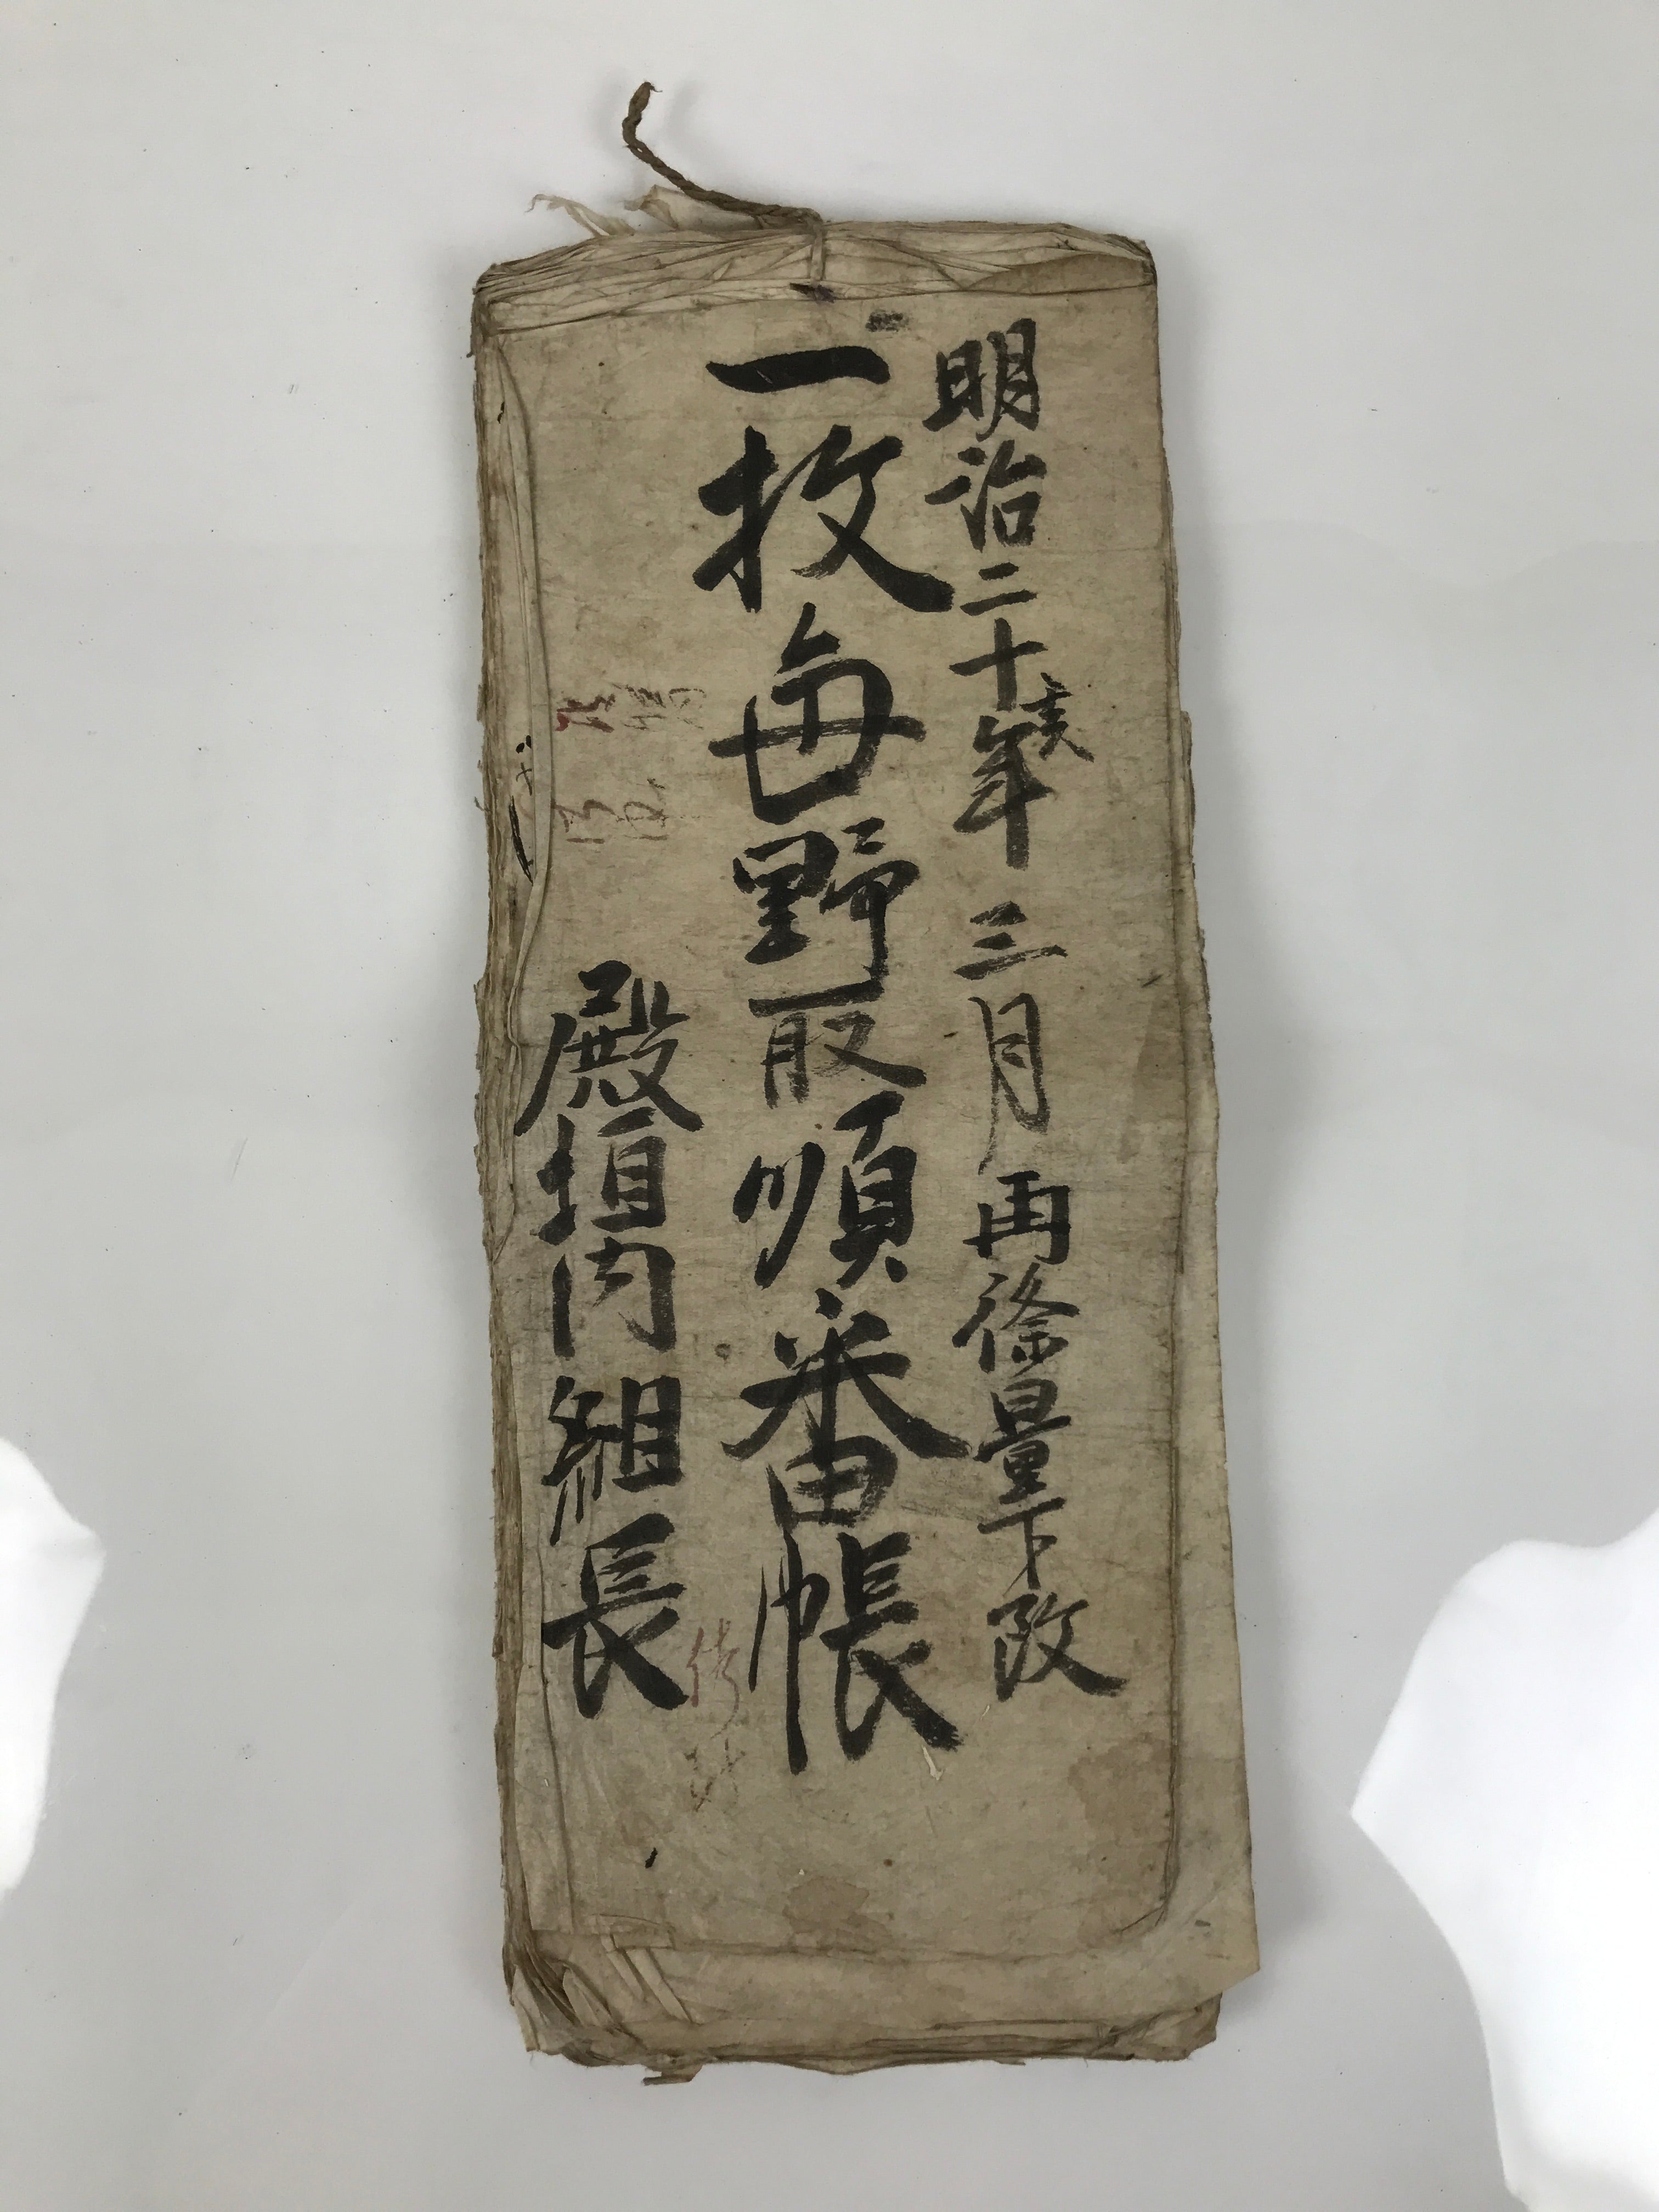 明治二十年亥三月再條量下改
一枚毎野取順番帳
殿垣内組長